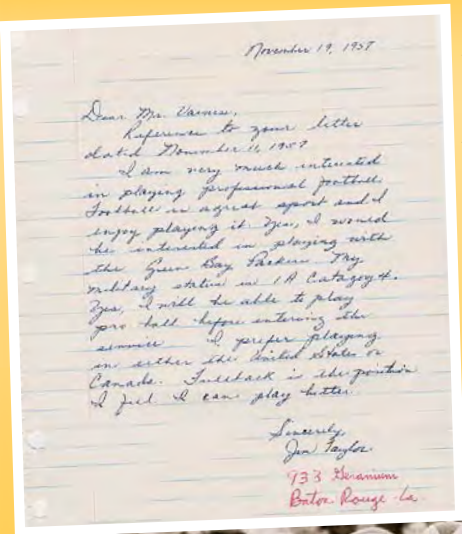 November 19, 1957
Dear Mr. Vainisi,
Reference to your letter
dated November 11, 1957
I am very much interested
in playing professional football
Football is a great sport and I
enjoy playing it. Yes, I would
be interested in playing with
the Green Bay Packers. My
military status is 1A Catagory 4.
Yes, I will be able to play
pro ball before entering the
service I prefer playing
in either the United States or
Canada. Fullback is the position
I feel I can play better.
Sincerely,
Jim Taylor
933 Geranium
Baton Rouge La.